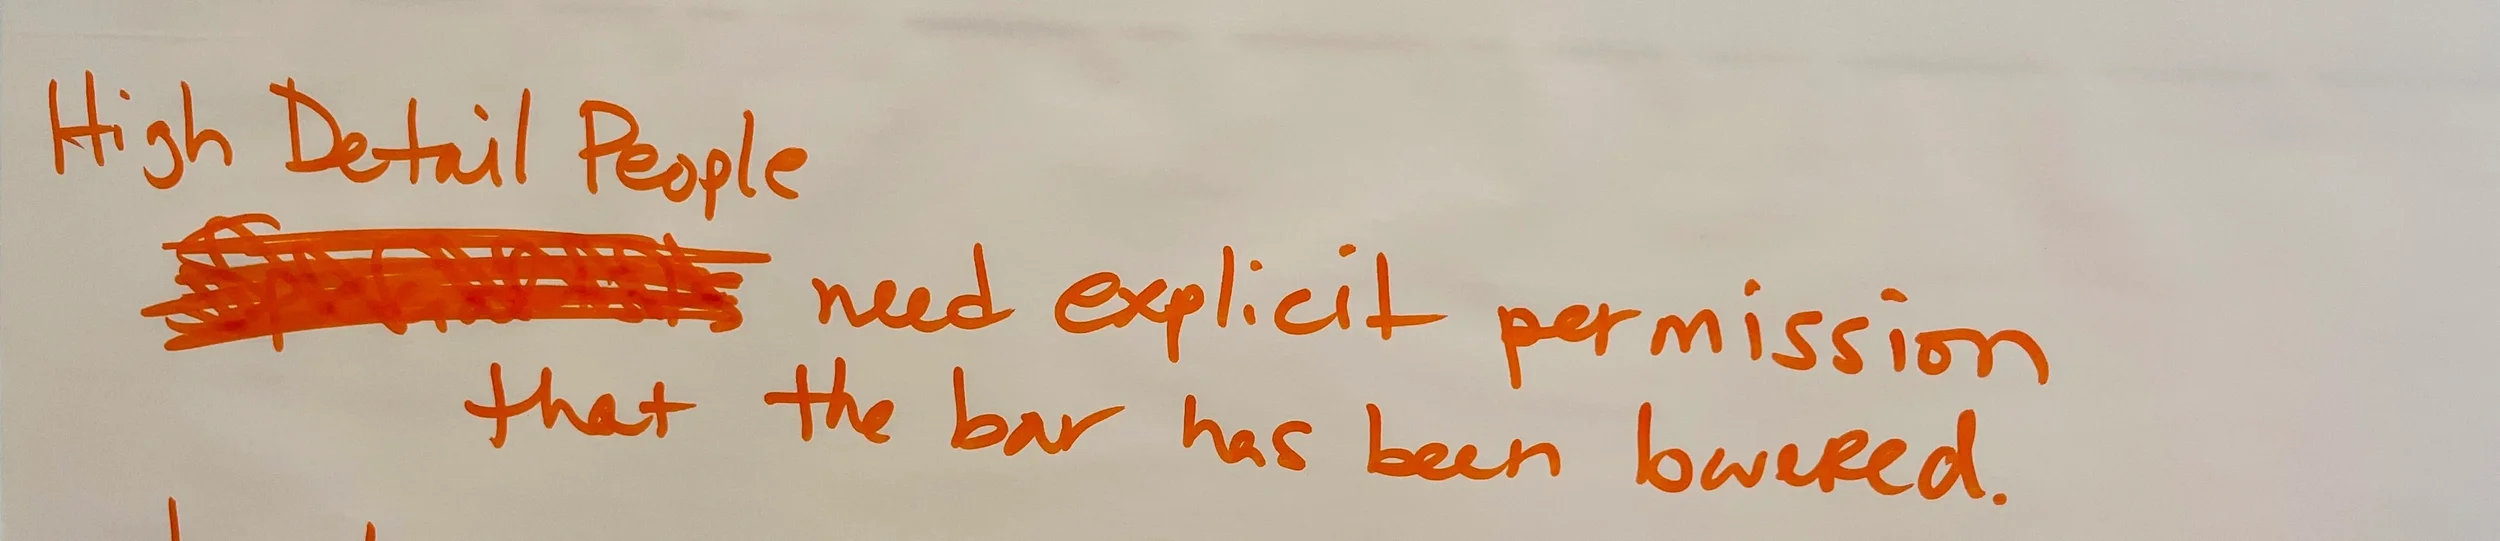 High Detail People
need explicit permission
that the bar has been lowered.